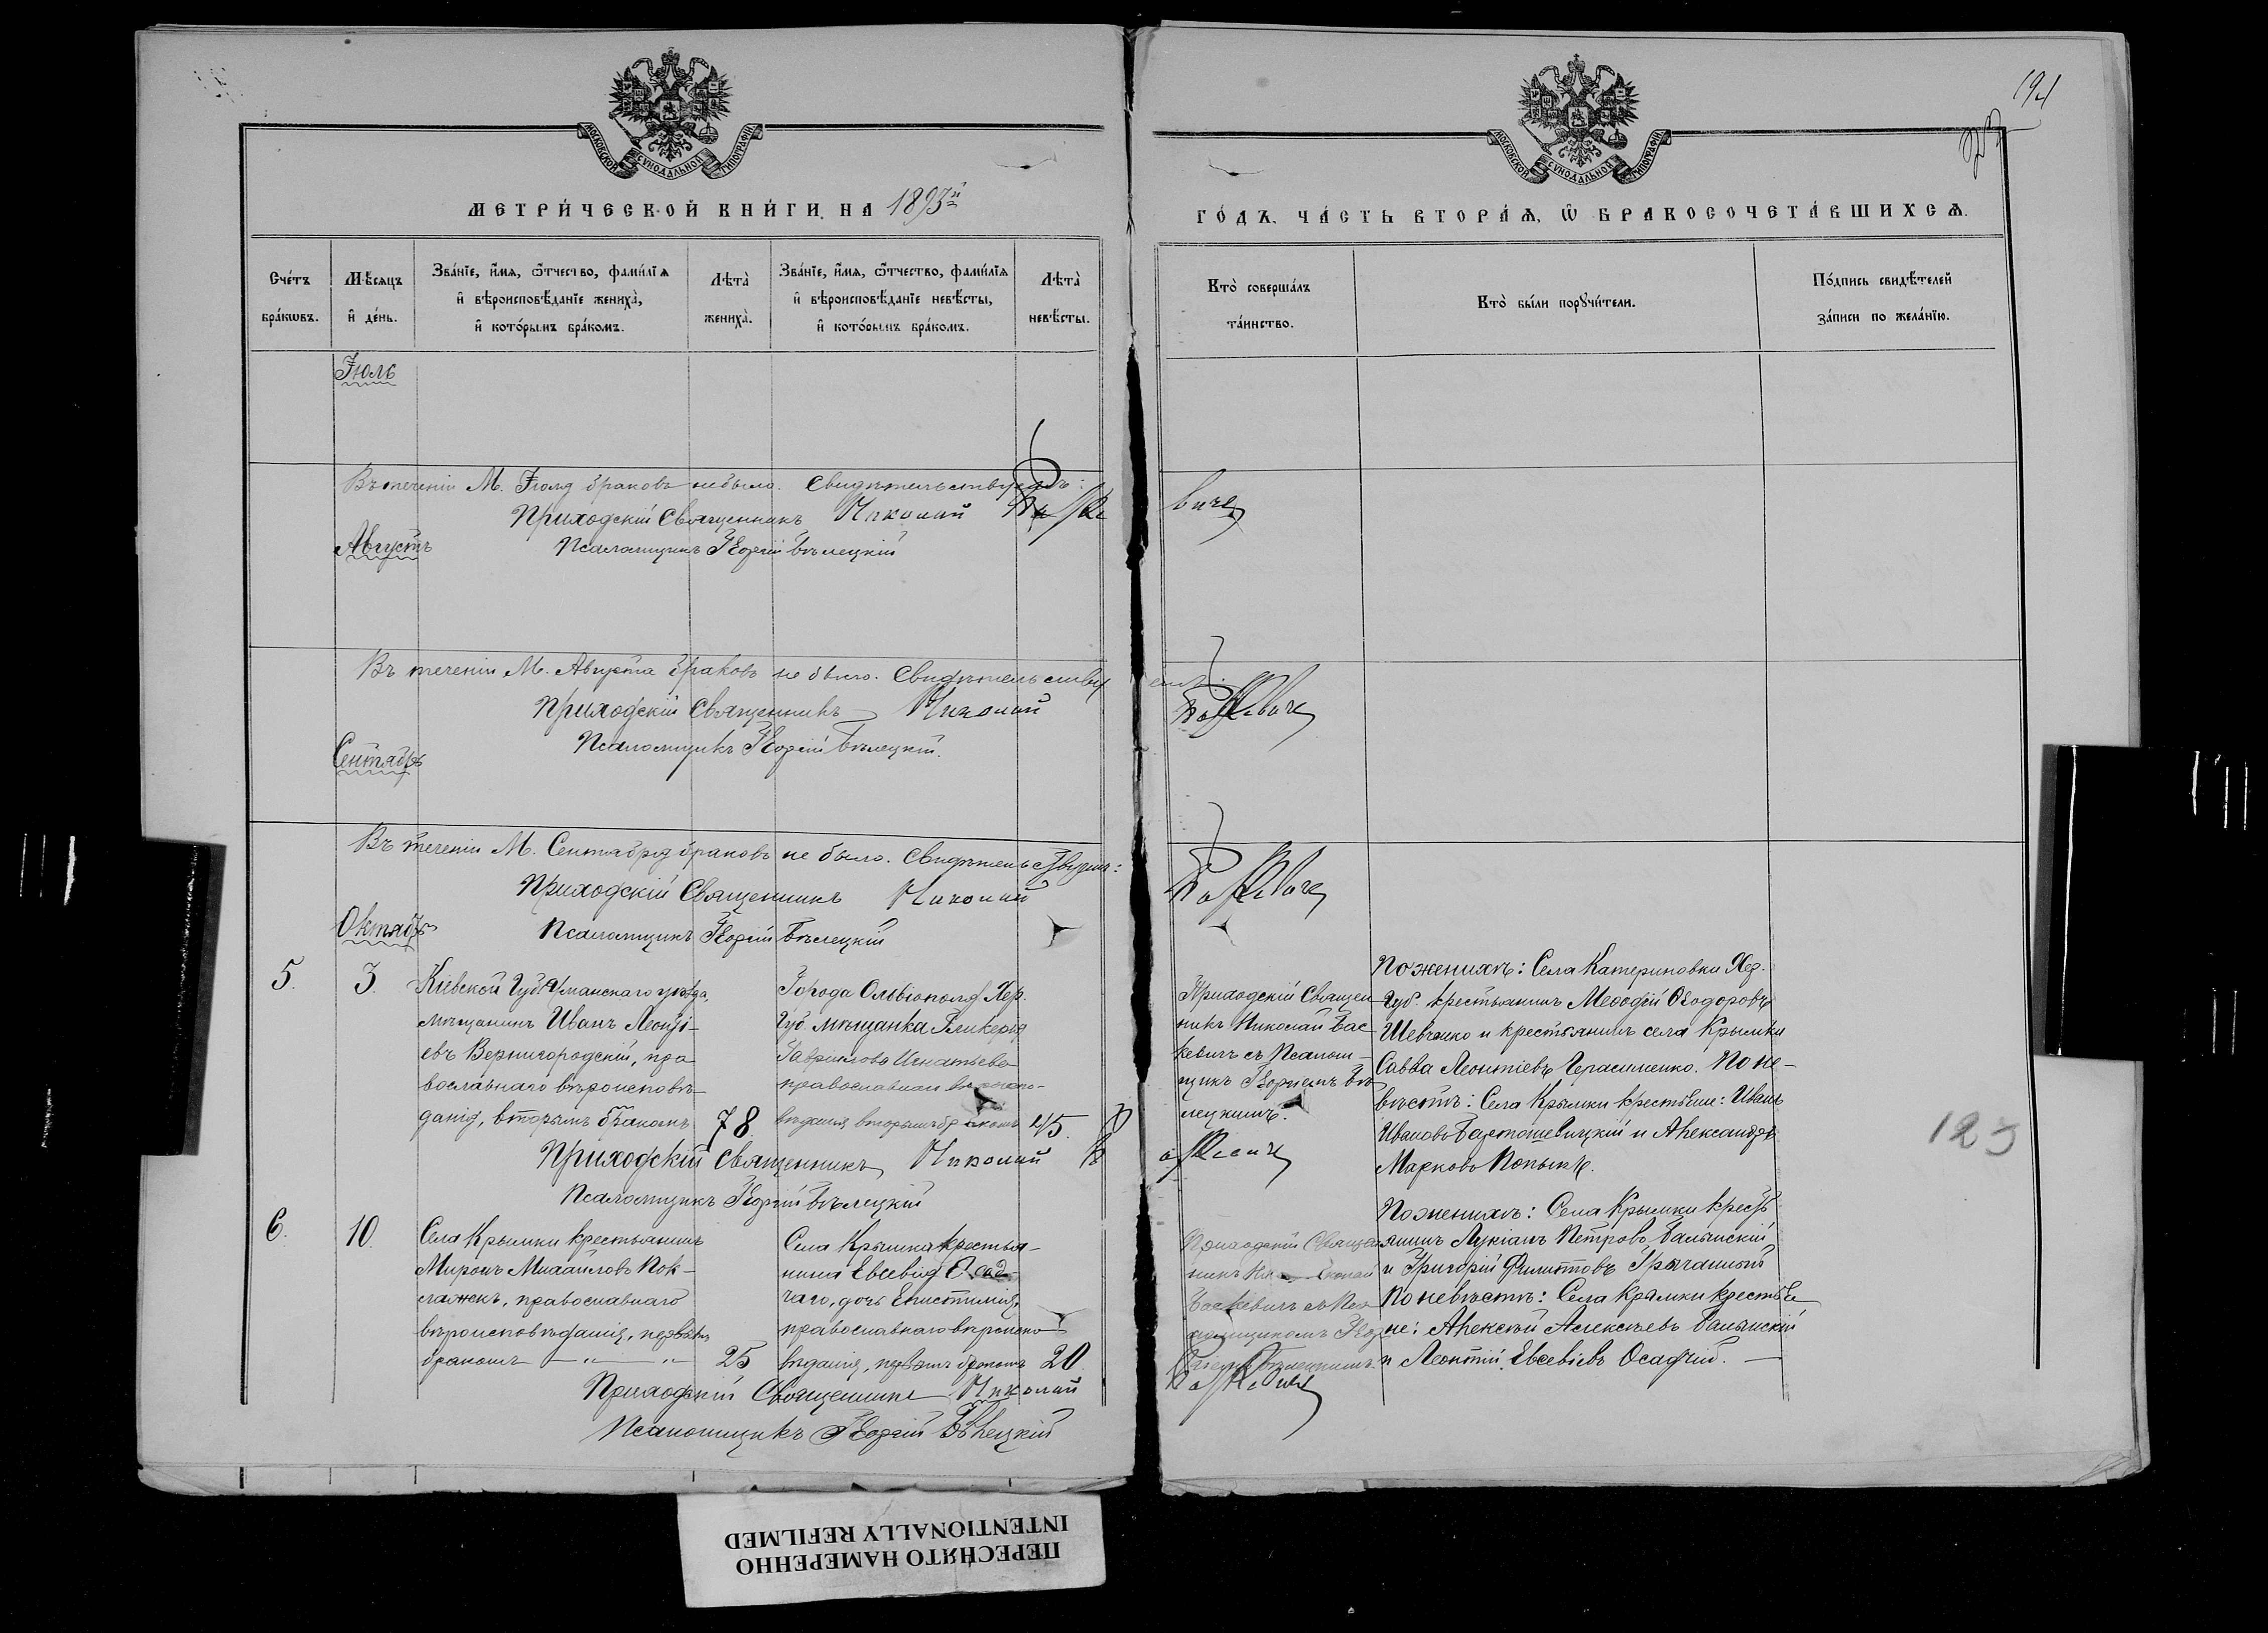 194
МОСКОВСКОЙ СѴНОДАЛЬНОЙ ТИПОГРАФІИ
МОСКОВСКОЙ СѴНОДАЛЬНОЙ ТИПОГРАФІИ
МЕТРИ́ЧЕСКОЙ КНИ́ГИ НА 1893й
ГО́ДЪ. ЧА́СТЬ ВТОРА́Ѧ, Ѽ БРАКОСОЧЕТА́ВШИХСѦ.
Сче́тъ бра́кѡвъ.
Мѣ́сѧцъ и҆ де́нь.
Зва́нїе, и҆́мѧ, ѻ҆́тчество, фами́лїѧ
и҆ вѣроисповѣ́данїе жениха̀,
и҆ кото́рымъ бра́комъ.
Лѣта̀ жениха̀.
Зва́нїе, и҆́мѧ, ѻ҆́тчество, фами́лїѧ
и҆ вѣроисповѣ́данїе невѣ́сты,
и҆ кото́рымъ бра́комъ.
Лѣта̀ невѣ́сты.
Кто̀ соверша́лъ та́инство.
Кто̀ бы́ли порꙋчи́тели.
По́дпись свидѣ́телей за́писи по жела́нїю.
Іюль
Въ теченіи М. Іюля браковъ не было. Свидѣтельствуютъ:
Приходскій Священникъ Николай Васкевичъ
Августъ
Псаломщикъ Георгій Бѣлецкій
Въ теченіи М. Августа браковъ не было. Свидѣтельствуютъ:
Приходскій Священникъ Николай Васкевичъ
Псаломщикъ Георгій Бѣлецкій.
Сентябрь
Въ теченіи М. Сентября браковъ не было. Свидѣтельствуютъ:
Приходскій Священникъ Николай Васкевичъ
Октябрь
Псаломщикъ Георгій Бѣлецкій
5.
3.
Кіевской Губ. Уманскаго уѣзда,
мѣщанинъ Иванъ Леонті-
евъ Вернигородскій, пра
вославнаго вѣроисповѣ-
данія, вторымъ бракомъ
78
Города Ольвіополя Хер.
Губ. мѣщанка Гликерія
Гаврилова Игнатьева
православнаго вѣроиспо-
вѣданія вторымъ бракомъ
45.
Приходскій Священ-
никъ Николай Вас
кевичъ съ Псалом-
щикъ Георгіемъ Бѣ
лецкимъ.
По женихѣ: Села Катериновки Хер.
Губ. крестьянинъ Меѳодій Ѳеодоровъ
Шевченко и крестьянинъ села Крымки
Савва Леонтіевъ Герасименко. По не-
вѣстѣ: Села Крымки крестьяне: Иванъ
Ивановъ Бартошевицкій и Александръ
Марковъ
123
Приходскій Священникъ Николай Васкевичъ
Псаломщикъ Георгій Бѣлецкій
6.
10.
Села Крымки крестьянинъ
Миронъ Михайловъ Пок-
, православнаго
вѣроисповѣданія, первымъ
бракомъ — " — "
25
Села Крымки крестья-
нина Евсевія Осад-
чаго, дочь Епистимія,
православнаго вѣроиспо
вѣданія, первымъ бракомъ
20.
Приходскій Священ
никъ Николай
Васкевичъ съ Пса
ломщикомъ Геор
гіемъ Бѣлецкимъ.
По женихѣ: Села Крымки кресть
янинъ Лукіанъ Петровъ
и Григорій Филипповъ
По невѣстѣ: Села Крымки крестья
не: Алексѣй Алексѣевъ
и Леонтій Евсевіевъ Осадчій. —
Приходскій Священникъ Николай Васкевичъ
Псаломщикъ Георгій Бѣлецкій
ПЕРЕСНЯТО НАМЕРЕННО
INTENTIONALLY REFILMED